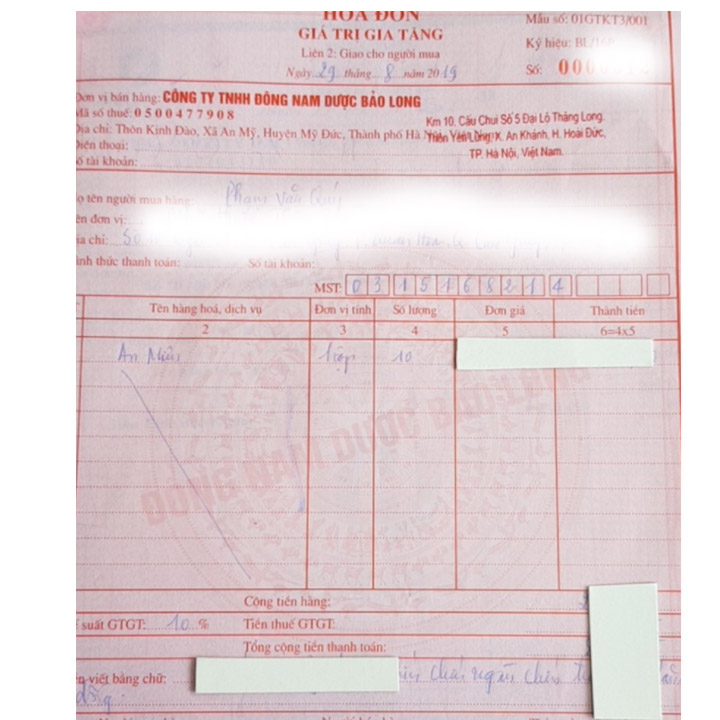 HÓA ĐƠN
GIÁ TRỊ GIA TĂNG
Liên 2: Giao cho người mua
Ngày 29 tháng 8 năm 2019
Mẫu số: 01GTKT3/001
Ký hiệu: BL/
Số: 000
Đơn vị bán hàng: CÔNG TY TNHH ĐÔNG NAM DƯỢC BẢO LONG
Mã số thuế: 0500477908
Địa chỉ: Thôn Kinh Đào, Xã An Mỹ, Huyện Mỹ Đức, Thành phố Hà
Điện thoại:
Số tài khoản:
Km 10, Cầu Chui Số 5 Đại Lộ Thăng Long.
Thôn Yên Lũng, X. An Khánh, H. Hoài Đức,
TP. Hà Nội, Việt Nam.
Họ tên người mua hàng: Phạm Văn Quý
Tên đơn vị:
Địa chỉ: 50
Hình thức thanh toán: Số tài khoản:
MST: 0315168214
Tên hàng hoá, dịch vụ Đơn vị tính Số lượng Đơn giá Thành tiền
2 3 4 5 6=4x5
An Miên hộp 10
ĐÔNG NAM DƯỢC BẢO LONG
Cộng tiền hàng:
suất GTGT: 10 % Tiền thuế GTGT:
Tổng cộng tiền thanh toán:
viết bằng chữ: ngàn chín
đồng